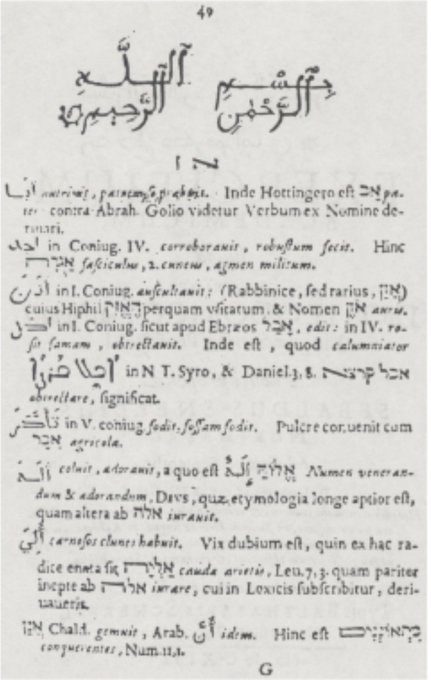 49
بسم الله
الرحمن الرحيم
א
nutriuit, Inde Hottingero est אב pa-
ter contra Abrah. Golio videtur Verbum ex Nomine de-
riuari.
in Coniug. IV. corroborauit, robustum fecit. Hinc
אגדה fasciculus, 2. cuneus, agmen militum.
اذن in I. Coniug. auscultauit: (Rabbinice, sed rarius, אזן)
cuius Hiphil האזין perquam vsitatum. & Nomen אזן auris.
in I. Coniug. sicut apud Ebræos אכל, edit: in IV. ro-
sit famam, obtrectauit. Inde est, quod calumniator
in N T. Syro, & Daniel. 3, 8. אכל קרצא
obtrectare, significat.
in V. coniug. fodit. fossam fodit. Pulcre conuenit cum
אכר agricola.
coluit, adorauit, a quo est אלוה Numen veneran-
dum & adorandum, Devs, quæ etymologia longe aptior est,
quam altera ab אלה iurauit.
carnosos clunes habuit. Vix dubium est, quin ex hac ra-
dice enata sit אליה cauda arietis, Leu. 7, 3. quam pariter
inepte ab אלה iurare, cui in Lexicis subscribitur, deri-
uaueris.
אנן Chald. gemuit, Arab. أن idem. Hinc est כמתאננים
conquerentes, Num. 11, 1.
G